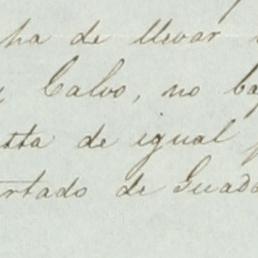 ha de llevar
Calvo, no
de igual
rtado de Guad